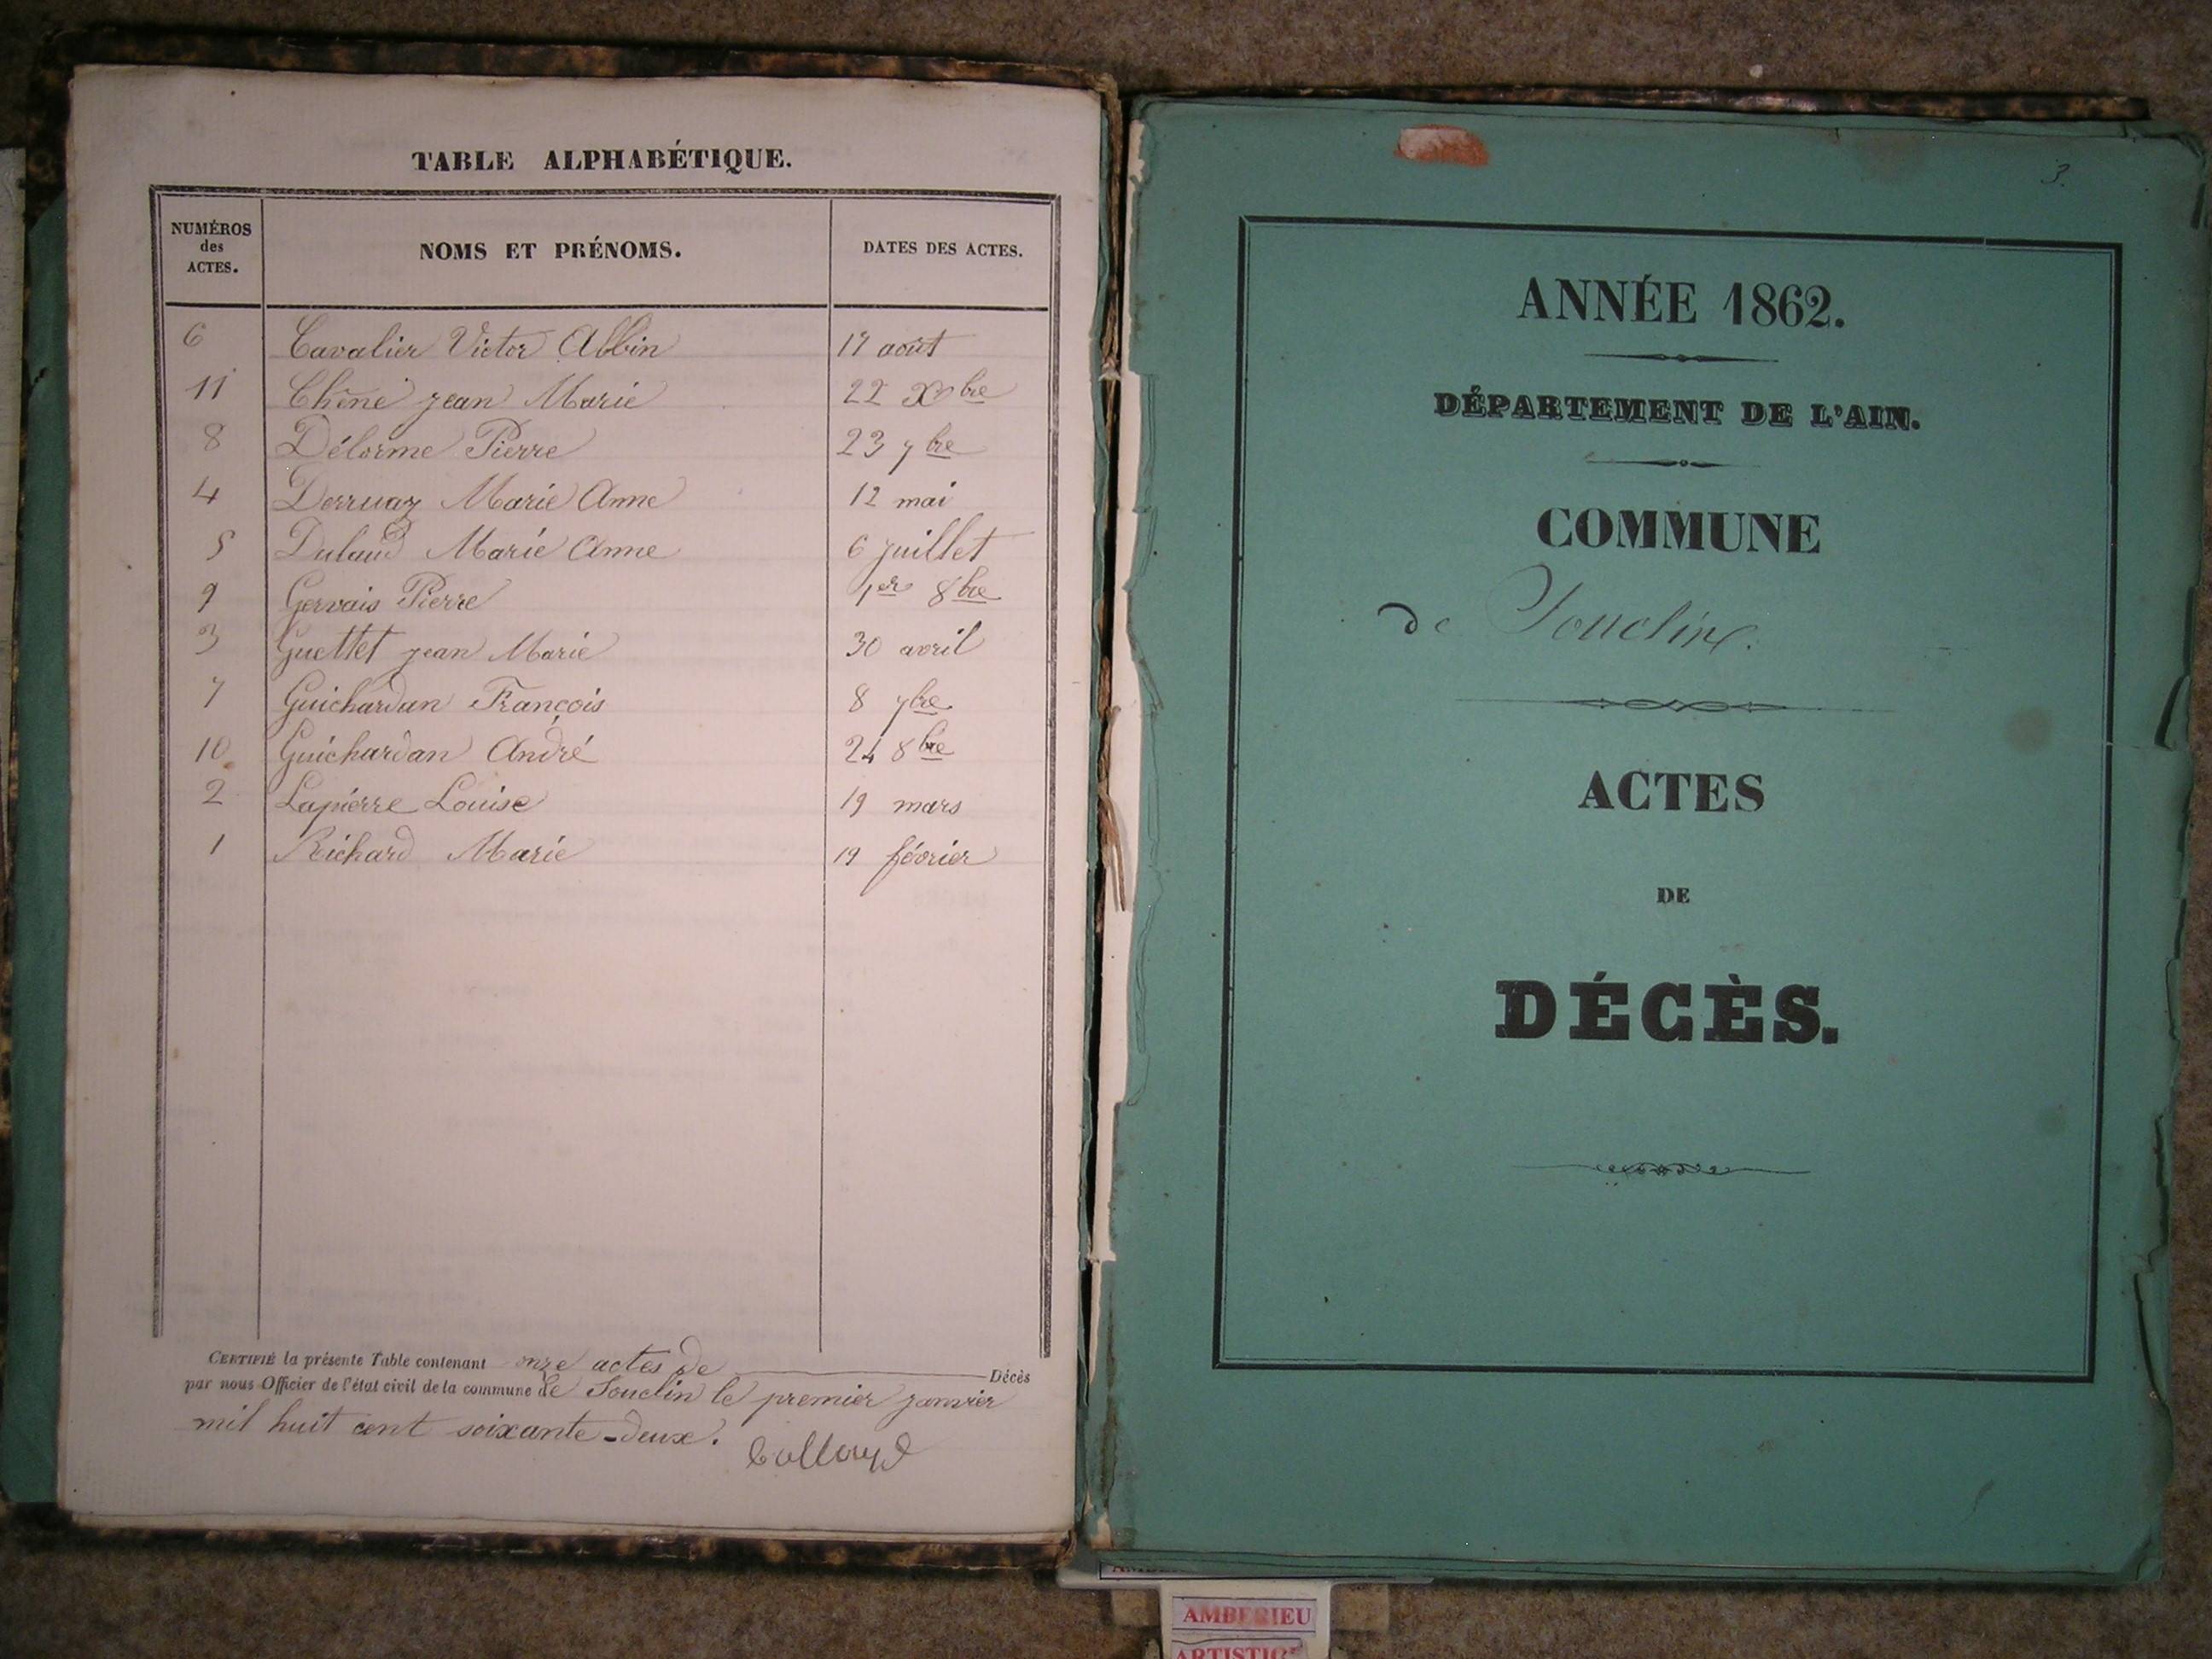 TABLE ALPHABÉTIQUE.
NUMÉROS des ACTES. NOMS ET PRÉNOMS. DATES DES ACTES.
6 Cavalier Victor Albin 17 août
11 Chêne jean Marie 22 Xbre
8 Délorme Pierre 23 7bre
4 Derruaz Marie Anne 12 mai
5 Dulaud Marie Anne 6 juillet
9 Gervais Pierre 1er 8bre
3 Guettet jean Marie 30 avril
7 Guichardan François 8 7bre
10 Guichardan André 24 8bre
2 Lapierre Louise 19 mars
1 Richard Marie 19 février
CERTIFIÉ la présente Table contenant onze actes de Décès
par nous Officier de l'état civil de la commune de Souclin le premier janvier
mil huit cent soixante-deux.
3.
ANNÉE 1862.
DÉPARTEMENT DE L'AIN.
COMMUNE
de Souclin.
ACTES
DE
DÉCÈS.
AMBERIEU